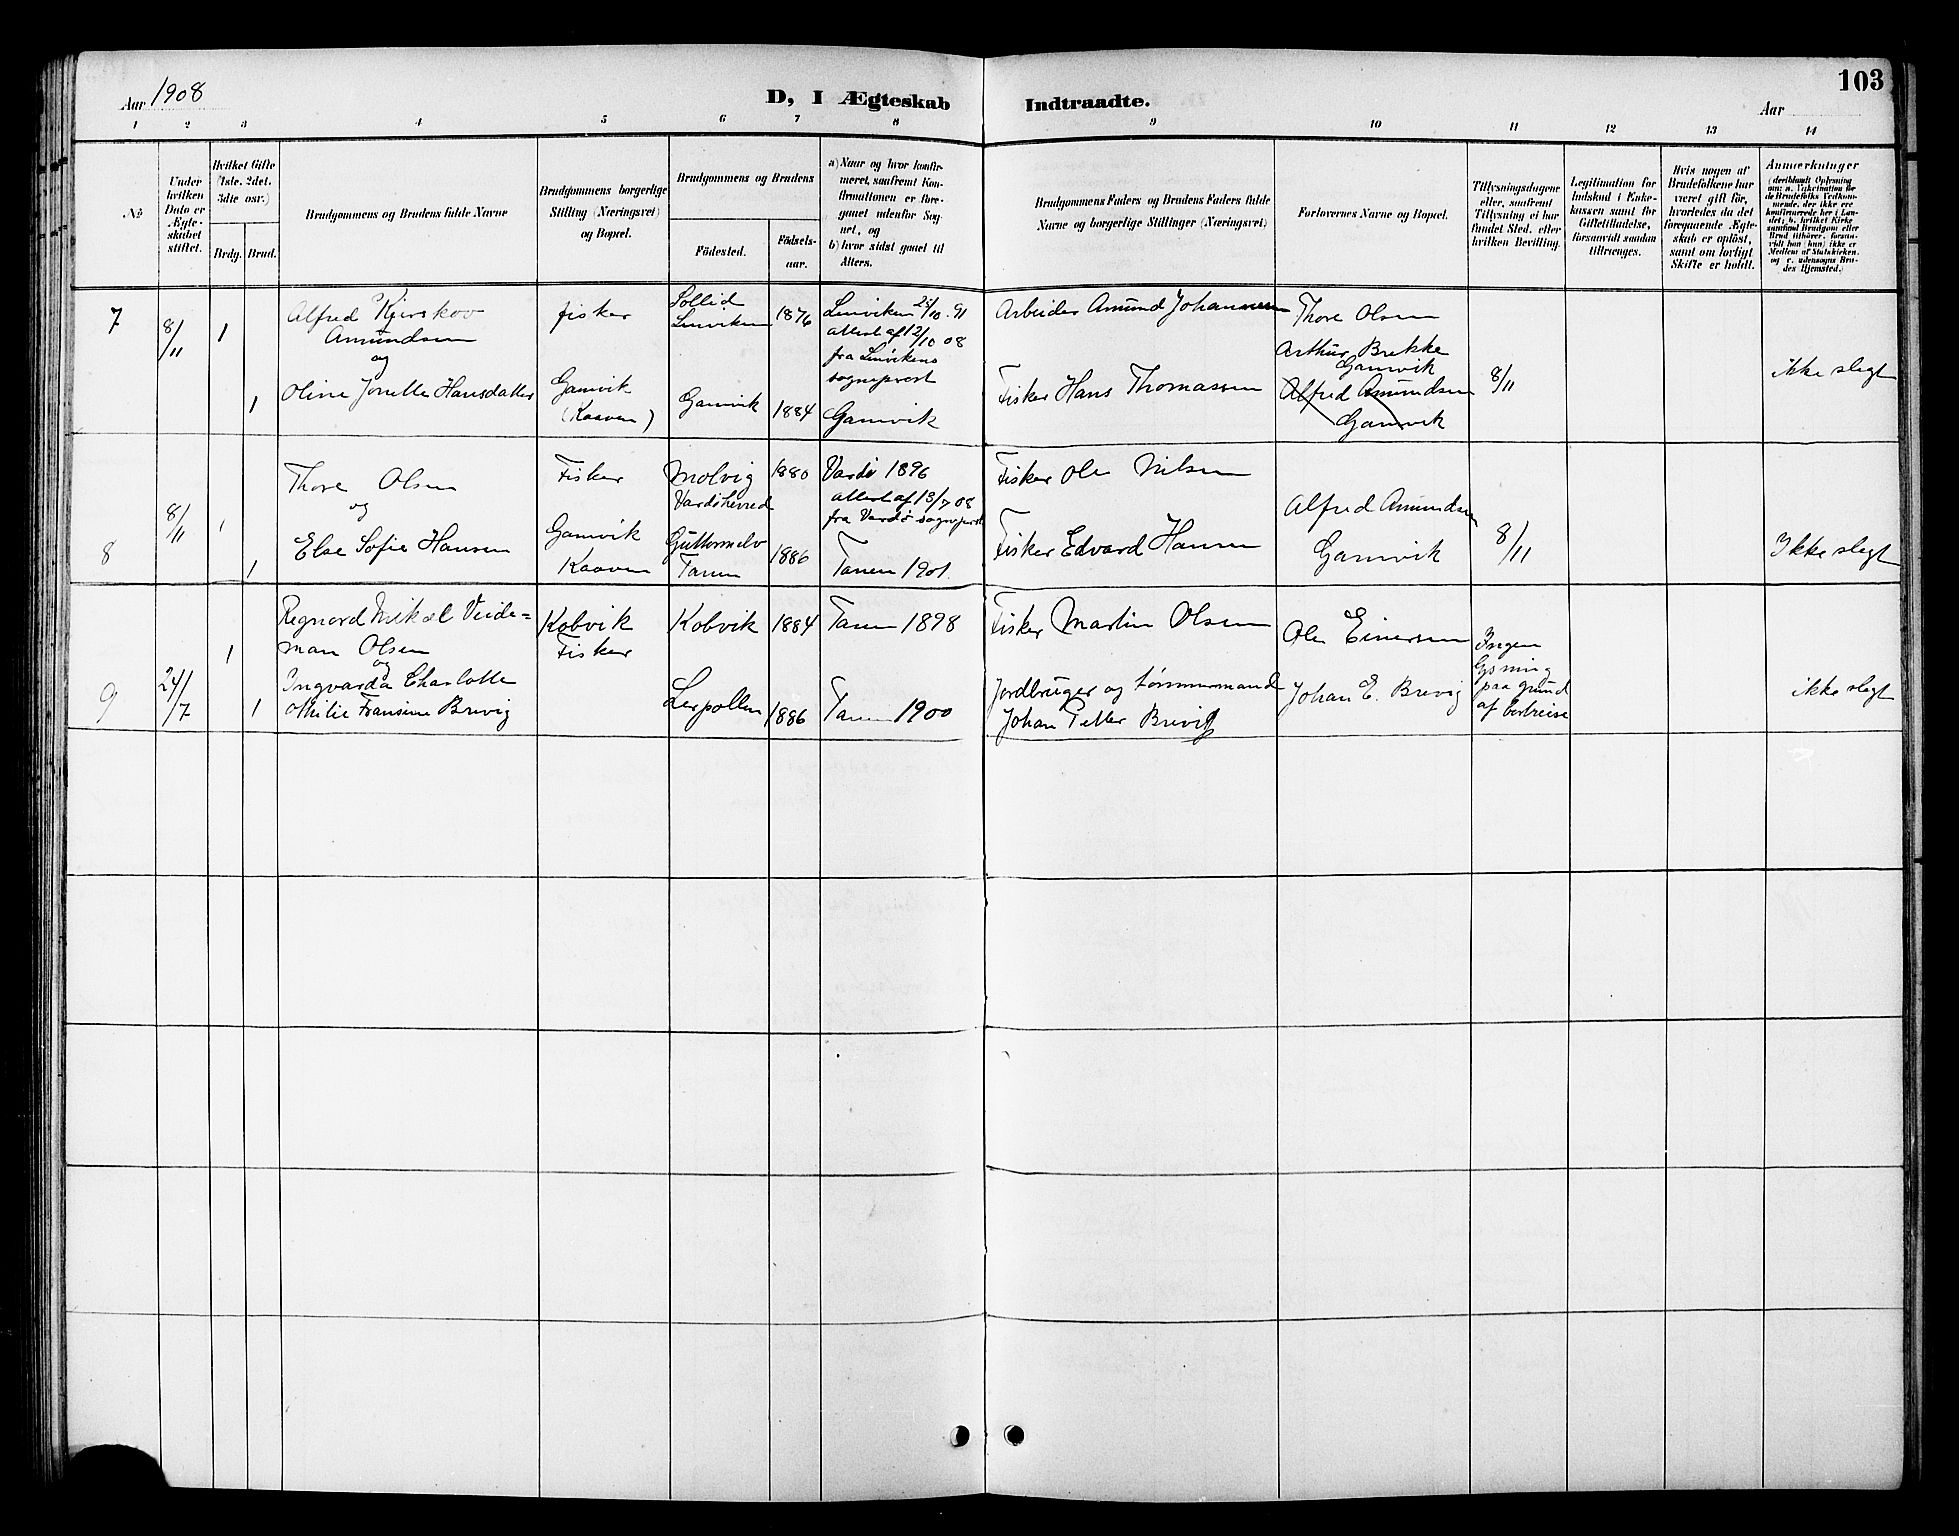 103
Aar 1908
D, I Ægteskab Indtraadte.
Aar
1 2 3 4 5 6 7 8 9 10 11 12 13 14
No
Under hvilken Dato er Ægteskabet stiftet.
Hvilket Gifte (1ste, 2det, 3dte osv.)
Brdg. Brud.
Brudgommens og Brudens fulde Navne
Brudgommens borgerlige Stilling (Næringsvei) og Bopæl.
Brudgommens og Brudens
Födested.
Födselsaar.
a) Naar og hvor konfirmeret, saafremt Konfirmationen er foregaaet udenfor Sognet, og
b) hvor sidst gaaet til Alters.
Brudgommens Faders og Brudens Faders fulde Navne og borgerlige Stillinger (Næringsvei)
Forlovernes Navne og Bopæl.
Tillysningsdagene eller, saafremt Tillysning ei har fundet Sted, efter hvilken Bevilling.
Legitimation for Indskud i Enkekassen samt for Giftetilladelse, forsaavidt saadan tiltrænges.
Hvis nogen af Brudefolkene har været gift för, hvorledes da det foregaaende Ægteskab er oplöst, samt om lovligt Skifte er holdt.
Anmærkninger
(deriblandt Oplysning om: a. Vakcination for de Brudefolks Vedkommende, der ikke ere konfirmerede her i Landet; b. hvilket Kirkesamfund Brudgom eller Brud tilhörer, forsaavidt han (hun) ikke er Medlem af Statskirken, og c. udensogns Brudes Hjemsted.)
7
8/11
1
1
Alfred Kjerskov
Amundsen
og
Oline Jonette Hansdatter
fisker
Gamvik
(Kaaven)
Sollid
Lenviken
1876
Gamvik
1884
Lenviken 25/10 . 91
attest af 12/10 08
fra Lenvikens
sogneprest
Gamvik
Arbeider Amund Johannesen
Fisker Hans Thomassen
Thore Olsen
Arthur Brekke
Gamvik
Alfred Amundsen
Gamvik
8/11
ikke slegt
8
8/11
1
1
Thore Olsen
og
Else Sofie Hansen
Fisker
Gamvik
Kaaven
Molvig
Vardö herred
1880
Guttormelv
Tanen
1886
Vardö 1896
attest af 13/7 08
fra Vardö sogneprest
Tanen 1901.
Fisker Ole Nilsen
Fisker Edvard Hansen
Alfred Amundsen
Gamvik
8/11
Ikke slegt
9
24/7
1
1
Regnord Mikal Veide=
man Olsen
og
Ingvarda Charlotte
Othilie Fransine Brevig
Kobvik
Fisker
Kobvik
1884
Lerpollen
1886
Tanen 1898
Tanen 1900
Fisker Martin Olsen
Jordbruger og tömmermand
Johan Petter Brevig
Ole Einersen
Johan E. Brevig
Ingen
lysning
paa grund
af bortreise
ikke slegt